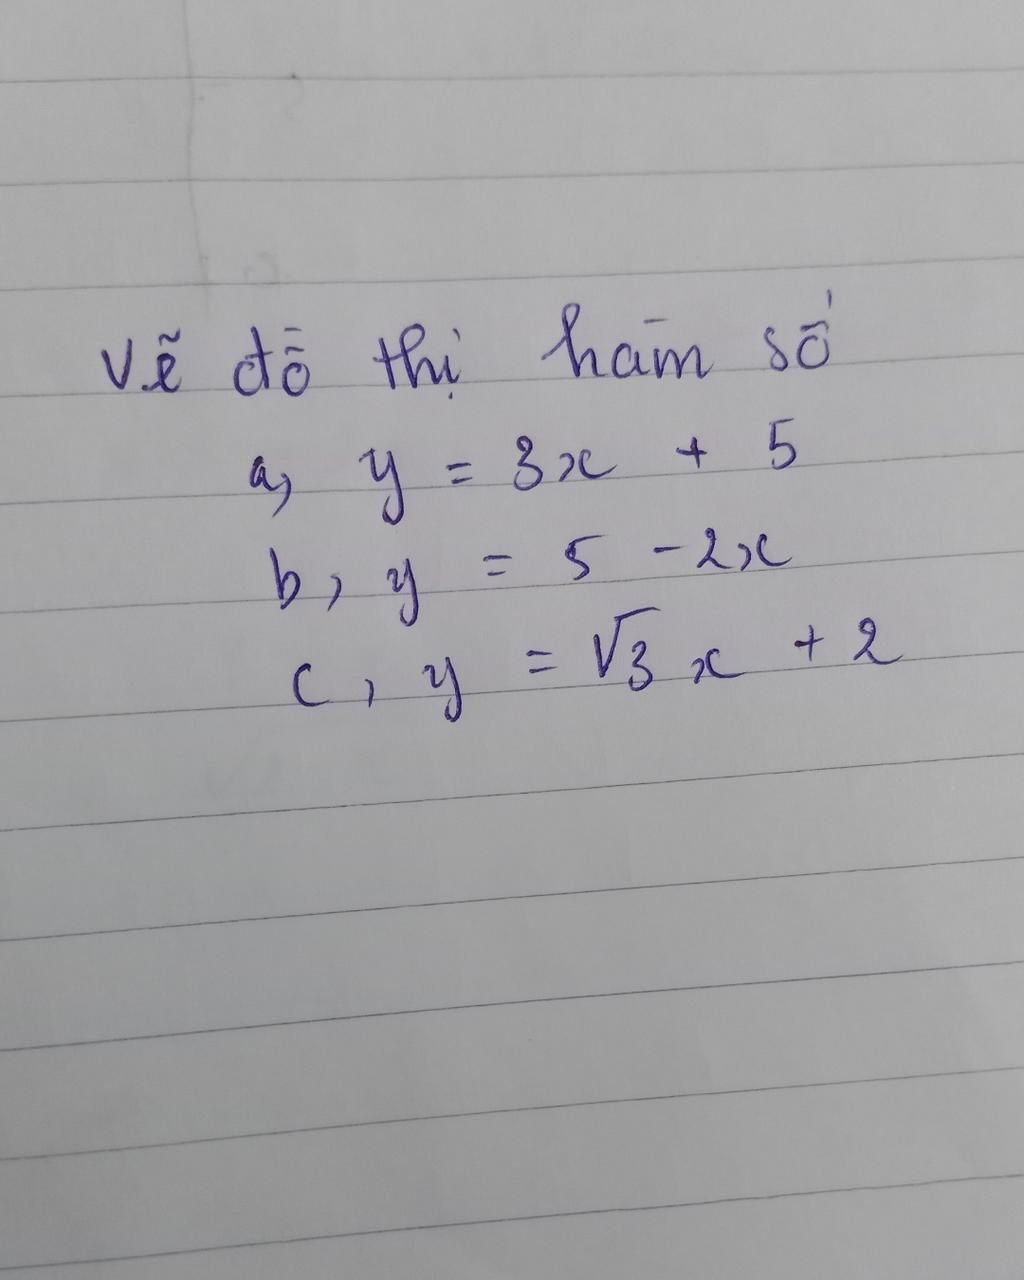 Vẽ đồ thị hàm số
a, y = 3x + 5
b, y = 5 - 2x
c, y = √3 x + 2